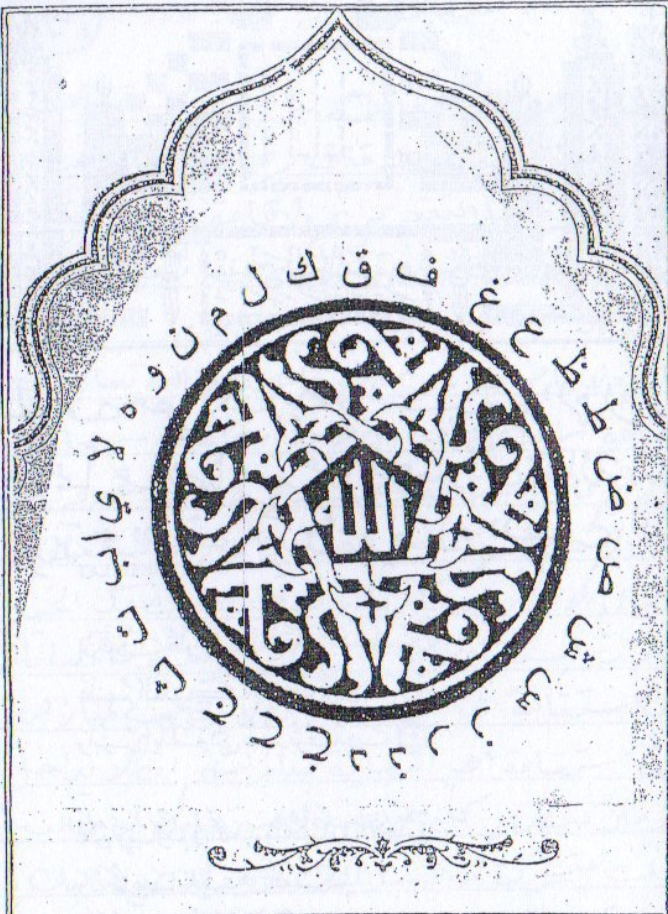 ا ب ت ث ج ح خ د ذ ر ز س ش ص ض ط ظ ع غ ف ق ك ل م ن و ه لا ي
الله